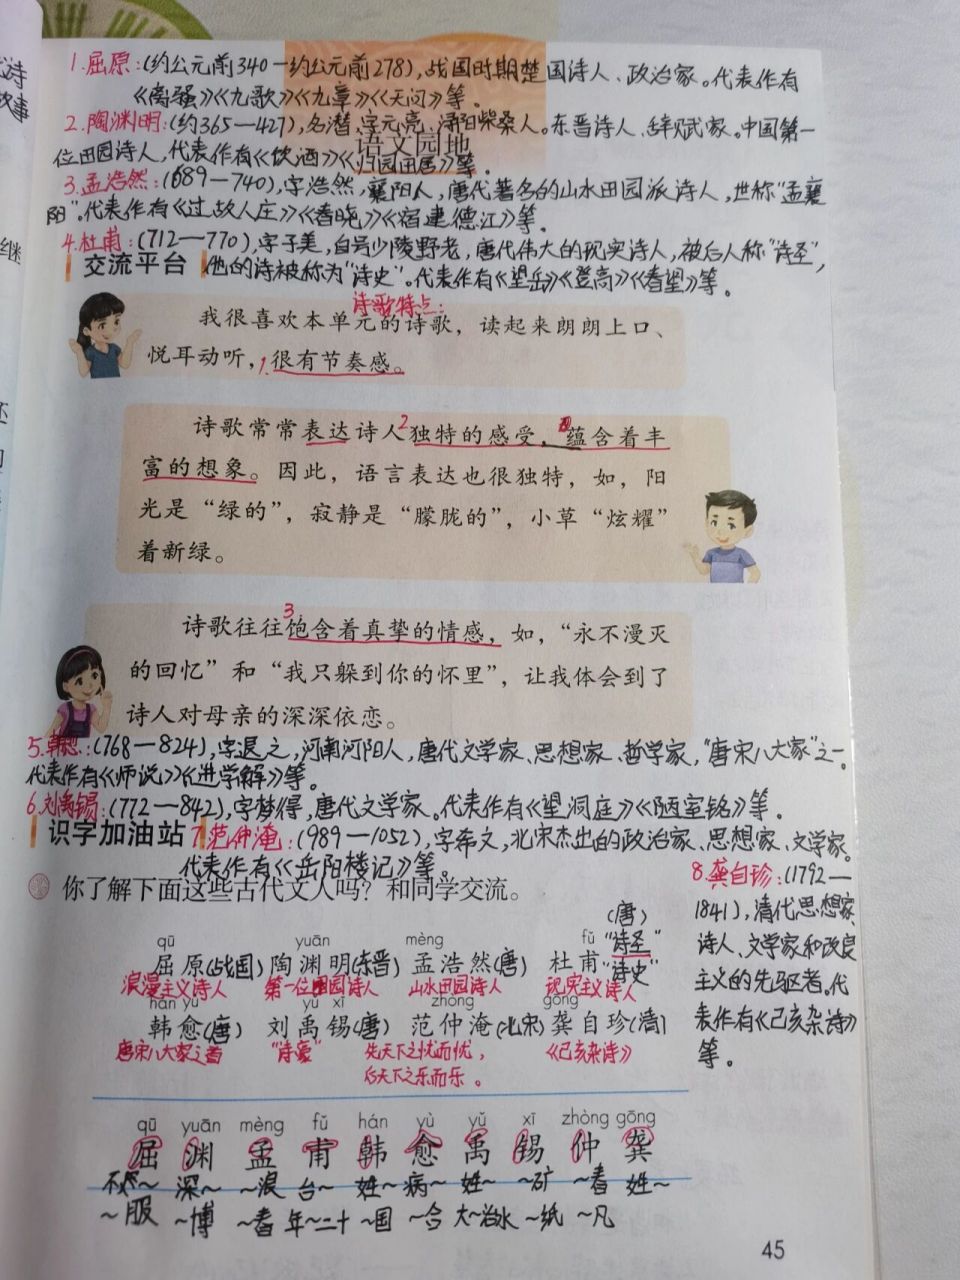 1.屈原:(约公元前340—约公元前278),战国时期楚国诗人、政治家。代表作有
《离骚》《九歌》《九章》《天问》等。
2.陶渊明:(约365—427),名潜,字元亮,浔阳柴桑人。东晋诗人、辞赋家。中国第一
语文园地
位田园诗人,代表作有《饮酒》《归园田居》等。
3.孟浩然:(689—740),字浩然,襄阳人,唐代著名的山水田园派诗人,世称“孟襄
阳”。代表作有《过故人庄》《春晓》《宿建德江》等。
4.杜甫:(712—770),字子美,自号少陵野老,唐代伟大的现实诗人,被后人称“诗圣”,
交流平台
他的诗被称为“诗史”。代表作有《望岳》《登高》《春望》等。
诗歌特点:
我很喜欢本单元的诗歌,读起来朗朗上口、
悦耳动听,1.很有节奏感。
诗歌常常表达诗人2独特的感受,蕴含着丰
富的想象。因此,语言表达也很独特,如,阳
光是“绿的”,寂静是“朦胧的”,小草“炫耀”
着新绿。
诗歌往往3饱含着真挚的情感,如,“永不漫灭
的回忆”和“我只躲到你的怀里”,让我体会到了
诗人对母亲的深深依恋。
5.韩愈:(768—824),字退之,河南河阳人,唐代文学家、思想家、哲学家,“唐宋八大家”之一。
代表作有《师说》《进学解》等。
6.刘禹锡:(772—842),字梦得,唐代文学家。代表作有《望洞庭》《陋室铭》等。
识字加油站
7.范仲淹:(989—1052),字希文,北宋杰出的政治家、思想家、文学家。
代表作有《岳阳楼记》等。
你了解下面这些古代文人吗?和同学交流。
8.龚自珍:(1792—
1841),清代思想家
诗人、文学家和改良
主义的先驱者。代
表作有《己亥杂诗》
等。
(唐)
qū yuān mèng fǔ “诗圣”
屈原(战国) 陶渊明(东晋) 孟浩然(唐) 杜甫“诗史”
浪漫主义诗人 第一位田园诗人 山水田园诗人 现实主义诗人
hán yù yǔ xī zhòng gōng
韩愈(唐) 刘禹锡(唐) 范仲淹(北宋) 龚自珍(清)
唐宋八大家之首 “诗豪” 先天下之忧而忧, 《己亥杂诗》
后天下之乐而乐。
qū yuān mèng fǔ hán yù yǔ xī zhòng gōng
屈 渊 孟 甫 韩 愈 禹 锡 仲 龚
不~ 深~ ~浪 台~ 姓~ 病~ 姓~ ~矿 ~春 姓~
~服 ~博 ~春 年~二十 ~国 ~合 大~治水 ~纸 ~凡
45